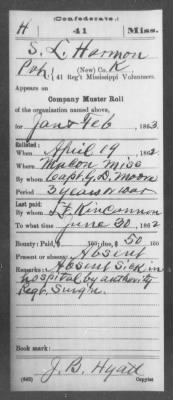 (Confederate.)
H 41 Miss.
S. L. Harmon
Pvt, (New) Co. K,
41 Reg't Mississippi Volunteers.
Appears on
Company Muster Roll
of the organization named above,
for Jan & Feb, 1863.
Enlisted:
When April 19, 1862
Where Macon Miss
By whom Capt. G. D. Moore
Period 3 years or war
Last paid:
By whom L. F. Kincannon
To what time June 30, 1862
Bounty: Paid $ 100; due $ 50 100
Present or absent Absent
Remarks: Absent Sick in
hospital by authority
Regt. Surg'n.
Book mark:
J. B. Hyatt
(642) Copyist